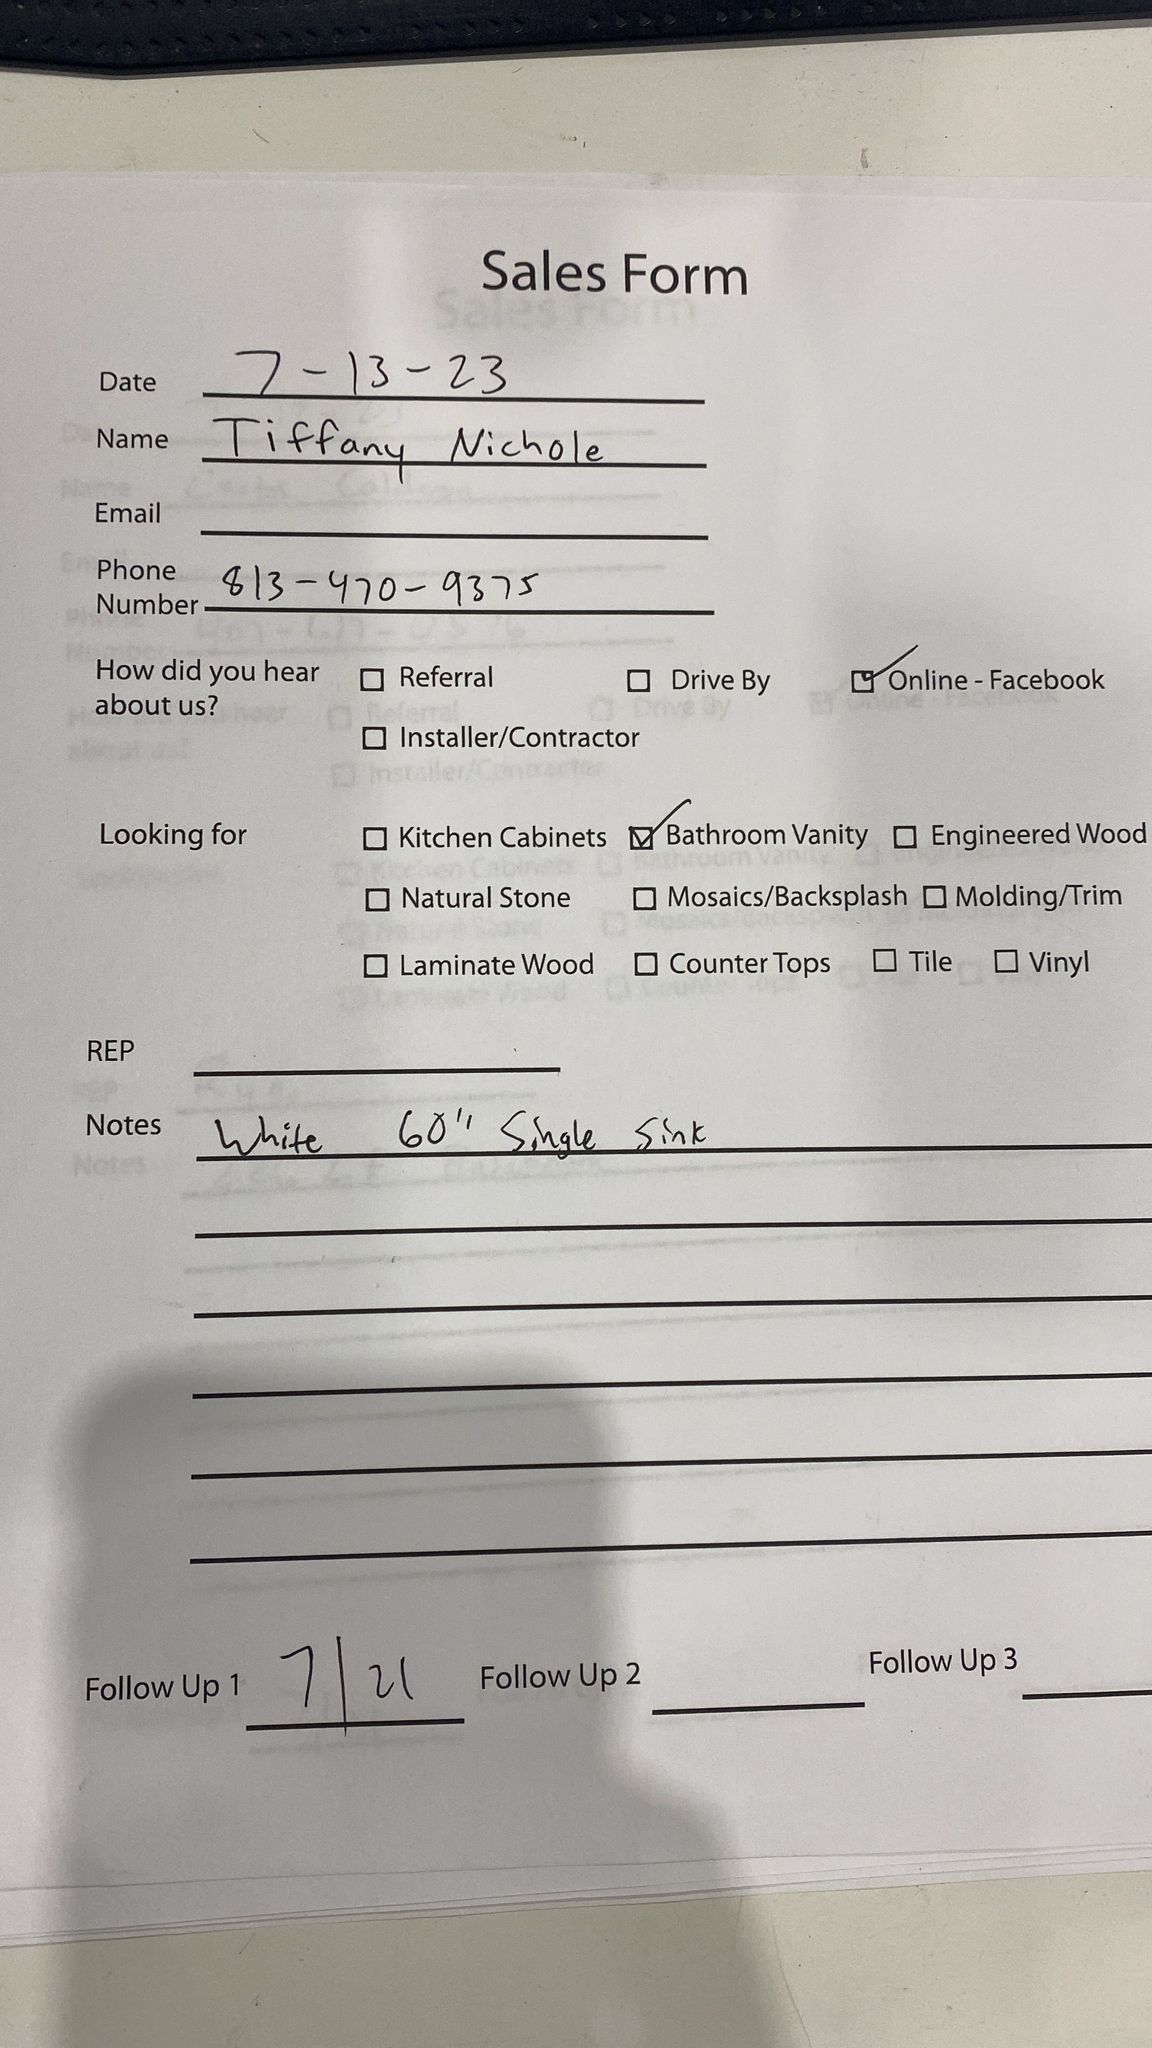 Sales Form
Date 7-13-23
Name Tiffany Nichole
Email
Phone
Number 813-470-9375
How did you hear about us? Referral Drive By Online - Facebook
Installer/Contractor
Looking for Kitchen Cabinets Bathroom Vanity Engineered Wood
Natural Stone Mosaics/Backsplash Molding/Trim
Laminate Wood Counter Tops Tile Vinyl
REP
Notes White 60" Single Sink
Follow Up 1 7/21 Follow Up 2 Follow Up 3